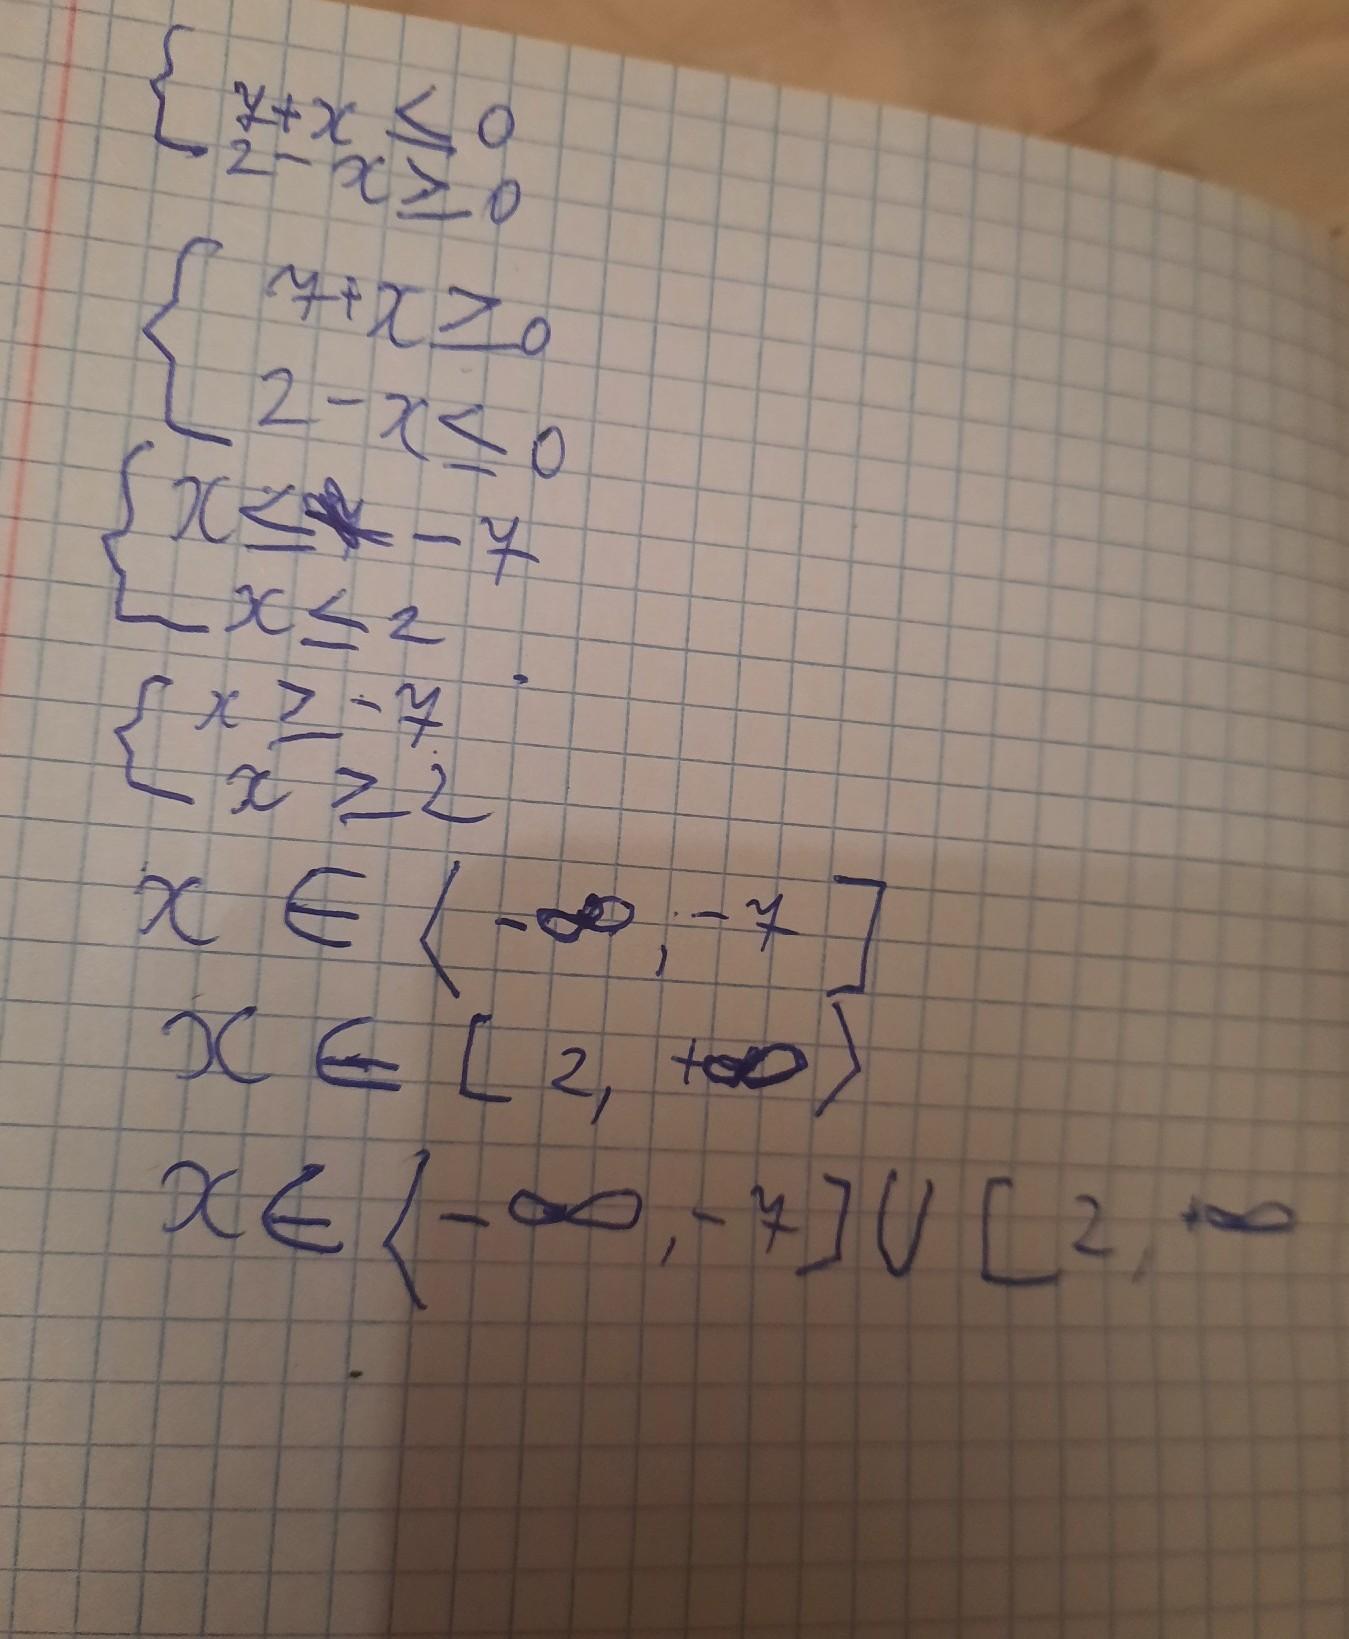 { 7+x ≤ 0
2-x ≥ 0
{ 7+x ≥ 0
2-x ≤ 0
{ x ≤ -7
x ≤ 2
{ x ≥ -7
x ≥ 2
x ∈ ⟨-∞, -7]
x ∈ [2, +∞⟩
x ∈ ⟨-∞, -7] ∪ [2, +∞